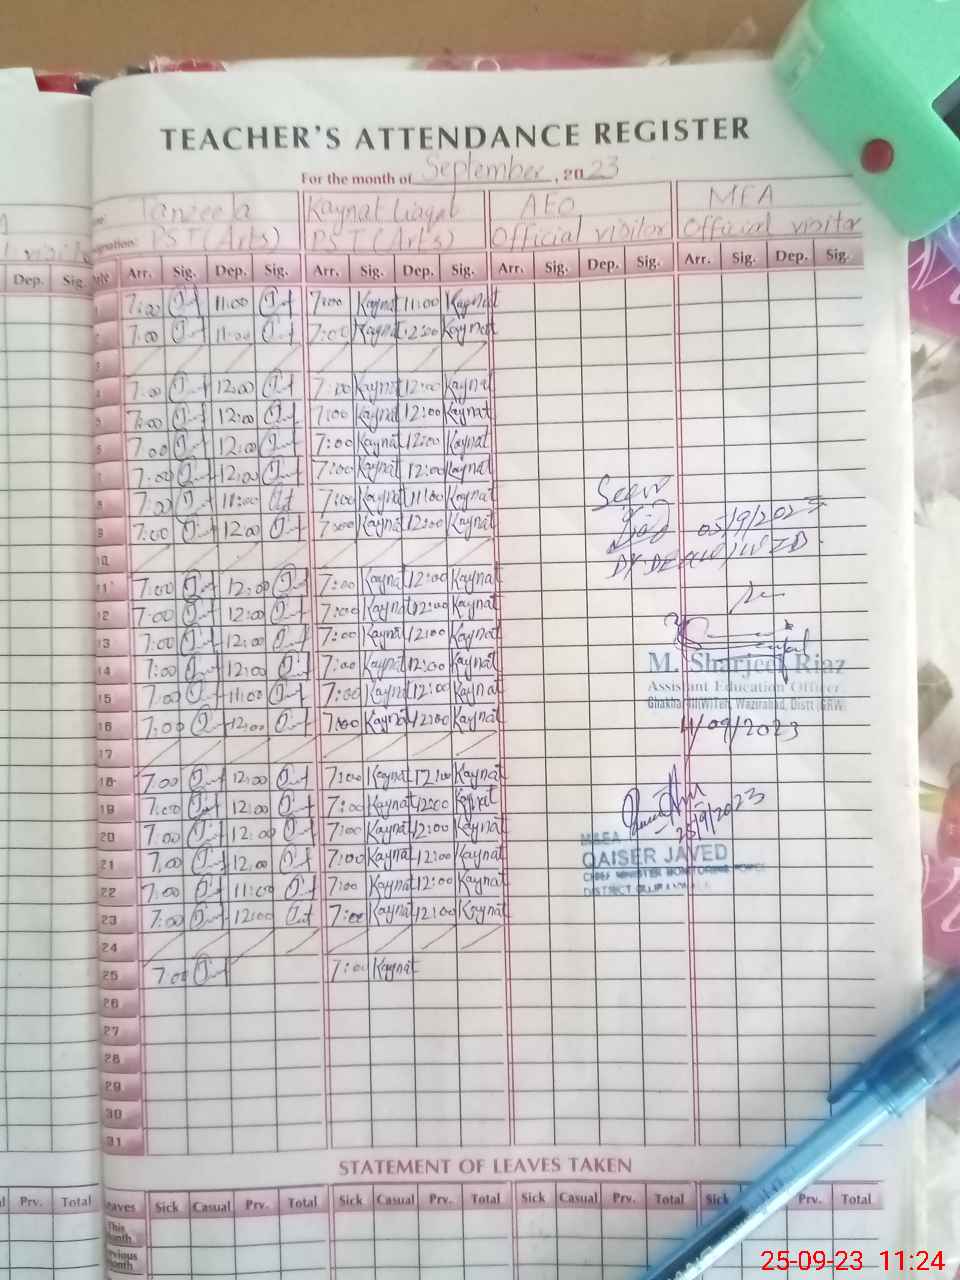 TEACHER'S ATTENDANCE REGISTER
For the month of September, 2023
Tanzeela Kaynat Liaqat AEO MEA
PST (Arts) PST (Arts) Official visitor Official visitor
Dep. Sig. Arr. Sig. Dep. Sig. Arr. Sig. Dep. Sig. Arr. Sig. Dep. Sig. Arr. Sig. Dep. Sig.
7:00 11:00 7:00 Kaynat 11:00 Kaynat
7:00 11:00 7:00 Kaynat 12:00 Kaynat
3
4 7:00 12:00 7:00 Kaynat 12:00 Kaynat
5 7:00 12:00 7:00 Kaynat 12:00 Kaynat
6 7:00 12:00 7:00 Kaynat 12:00 Kaynat
7 7:00 12:00 7:00 Kaynat 12:00 Kaynat
8 7:00 11:00 7:00 Kaynat 11:00 Kaynat
9 7:00 12:00 7:00 Kaynat 12:00 Kaynat
05/9/2023
10
11 7:00 12:00 7:00 Kaynat 12:00 Kaynat
12 7:00 12:00 7:00 Kaynat 12:00 Kaynat
13 7:00 12:00 7:00 Kaynat 12:00 Kaynat
14 7:00 12:00 7:00 Kaynat 12:00 Kaynat
M. Sharjeel Riaz
15 7:00 11:00 7:00 Kaynat 12:00 Kaynat
Assistant Education Officer
Wazirabad, Distt (GRW)
16 7:00 12:00 7:00 Kaynat 12:00 Kaynat
/09/2023
17
18 7:00 12:00 7:00 Kaynat 12:00 Kaynat
19 7:00 12:00 7:00 Kaynat 12:00 Kaynat
25/9/2023
20 7:00 12:00 7:00 Kaynat 12:00 Kaynat
21 7:00 12:00 7:00 Kaynat 12:00 Kaynat
QAISER JAVED
22 7:00 11:00 7:00 Kaynat 12:00 Kaynat
CHIEF MINISTER MONITORING FORCE
DISTRICT
23 7:00 12:00 7:00 Kaynat 12:00 Kaynat
24
25 7:00 7:00 Kaynat
26
27
28
29
30
31
STATEMENT OF LEAVES TAKEN
Prv. Total Leaves Sick Casual Prv. Total Sick Casual Prv. Total Sick Casual Prv. Total Sick Prv. Total
This Month
Previous Month
25-09-23 11:24